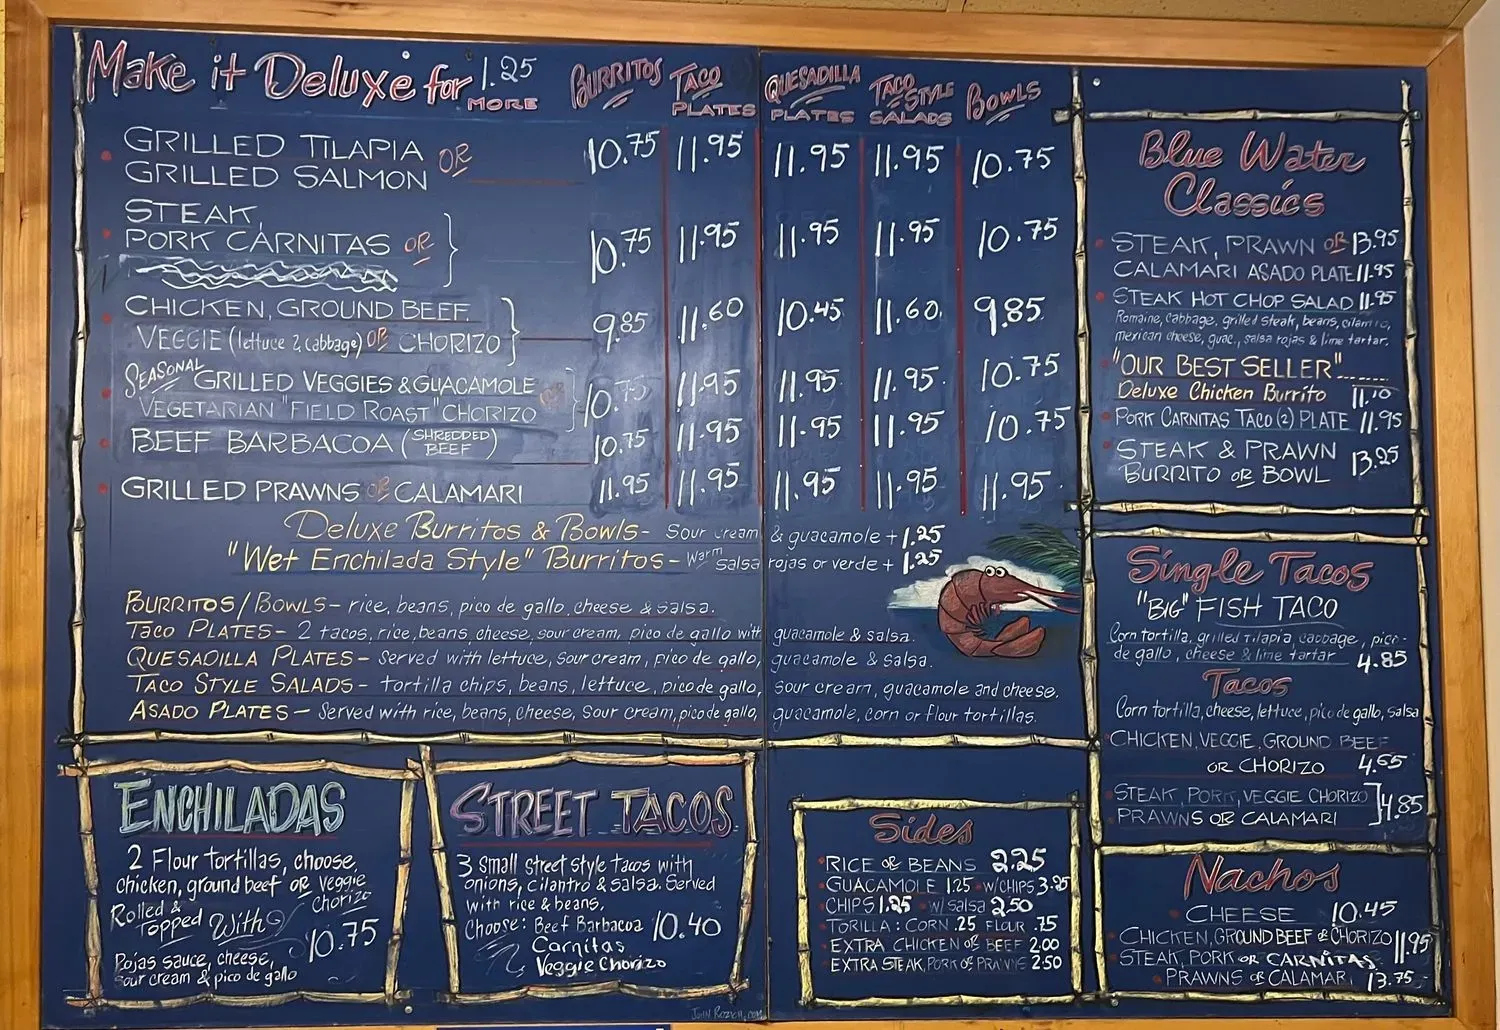 Make it Deluxe for 1.25 MORE
BURRITOS
TACO PLATES
QUESADILLA PLATES
TACO STYLE SALADS
BOWLS
GRILLED TILAPIA OR
GRILLED SALMON
10.75 11.95 11.95 11.95 10.75
STEAK,
PORK CARNITAS OR
10.75 11.95 11.95 11.95 10.75
CHICKEN, GROUND BEEF,
VEGGIE (lettuce & cabbage) OR CHORIZO
9.85 11.60 10.45 11.60 9.85
SEASONAL GRILLED VEGGIES & GUACAMOLE OR
VEGETARIAN "FIELD ROAST" CHORIZO
10.75 11.95 11.95 11.95 10.75
BEEF BARBACOA (SHREDDED BEEF)
10.75 11.95 11.95 11.95 10.75
GRILLED PRAWNS OR CALAMARI
11.95 11.95 11.95 11.95 11.95
Deluxe Burritos & Bowls- Sour cream & guacamole + 1.25
"Wet Enchilada Style" Burritos- Warm salsa rojas or verde + 1.25
BURRITOS/BOWLS- rice, beans, pico de gallo, cheese & salsa.
TACO PLATES- 2 tacos, rice, beans, cheese, sour cream, pico de gallo with guacamole & salsa.
QUESADILLA PLATES- Served with lettuce, sour cream, pico de gallo, guacamole & salsa.
TACO STYLE SALADS- tortilla chips, beans, lettuce, pico de gallo, sour cream, guacamole and cheese.
ASADO PLATES- Served with rice, beans, cheese, sour cream, pico de gallo, guacamole, corn or flour tortillas.
ENCHILADAS
2 Flour tortillas, choose,
chicken, ground beef or veggie
chorizo
Rolled &
Topped With
Rojas sauce, cheese,
sour cream & pico de gallo
10.75
STREET TACOS
3 small street style tacos with
onions, cilantro & salsa. Served
with rice & beans.
Choose: Beef Barbacoa
Carnitas
Veggie Chorizo
10.40
John Rozich.com
Sides
RICE OR BEANS 2.25
GUACAMOLE 1.25 • W/CHIPS 3.95
CHIPS 1.25 • w/Salsa 2.50
TORILLA: CORN .25 FLOUR .75
EXTRA CHICKEN OR BEEF 2.00
EXTRA STEAK, PORK OR PRAWNS 2.50
Blue Water
Classics
STEAK, PRAWN OR 13.95
CALAMARI ASADO PLATE 11.95
STEAK HOT CHOP SALAD 11.95
Romaine, cabbage, grilled steak, beans, cilantro,
mexican cheese, guac., salsa rojas & lime tartar.
"OUR BEST SELLER"......
Deluxe Chicken Burrito 11.10
PORK CARNITAS TACO (2) PLATE 11.95
STEAK & PRAWN
BURRITO OR BOWL 13.25
Single Tacos
"BIG" FISH TACO
Corn tortilla, grilled tilapia, cabbage, pico-
de gallo, cheese & lime tartar 4.85
Tacos
Corn tortilla, cheese, lettuce, pico de gallo, salsa
CHICKEN, VEGGIE, GROUND BEEF
OR CHORIZO 4.65
STEAK, PORK, VEGGIE CHORIZO
PRAWNS OR CALAMARI
4.85
Nachos
CHEESE 10.45
CHICKEN, GROUND BEEF OR CHORIZO 11.95
STEAK, PORK OR CARNITAS,
PRAWNS OR CALAMARI 13.75